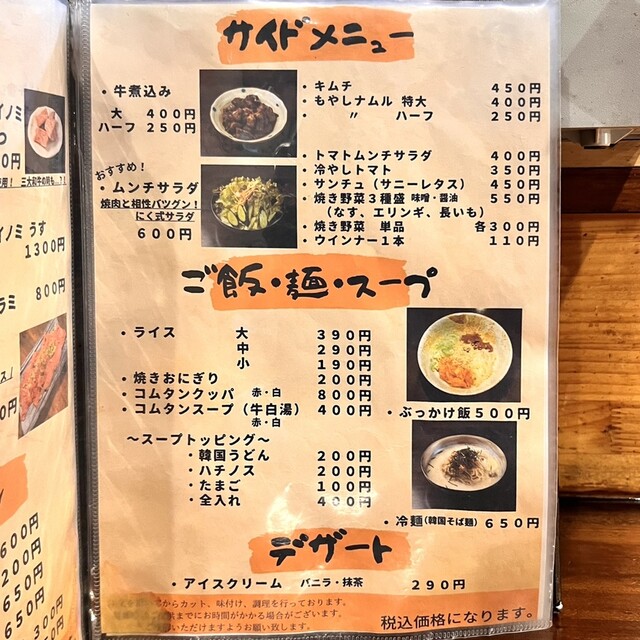 サイドメニュー
・牛煮込み
大 400円
ハーフ 250円
おすすめ!
・ムンチサラダ
焼肉と相性バツグン!
にく式サラダ
600円
・キムチ 450円
・もやしナムル 特大 400円
・ 〃 ハーフ 250円
・トマトムンチサラダ 400円
・冷やしトマト 350円
・サンチュ(サニーレタス) 450円
・焼き野菜3種盛 味噌・醤油 550円
(なす、エリンギ、長いも)
・焼き野菜 単品 各300円
・ウインナー1本 110円
ご飯・麺・スープ
・ライス 大 390円
中 290円
小 190円
・焼きおにぎり 200円
・コムタンクッパ 赤・白 800円
・コムタンスープ(牛白湯) 400円
赤・白
〜スープトッピング〜
・韓国うどん 200円
・ハチノス 200円
・たまご 100円
・全入れ 400円
・ぶっかけ飯500円
・冷麺(韓国そば麺)650円
デザート
・アイスクリーム バニラ・抹茶 290円
からカット、味付け、調理を行っております。
までにお時間がかかる場合がございます。
いただけますようお願い致します。
税込価格になります。
イノミ
三大和牛の時も…?!
イノミ うす
1300円
ラミ
800円
600円
200円
650円
650円
300円